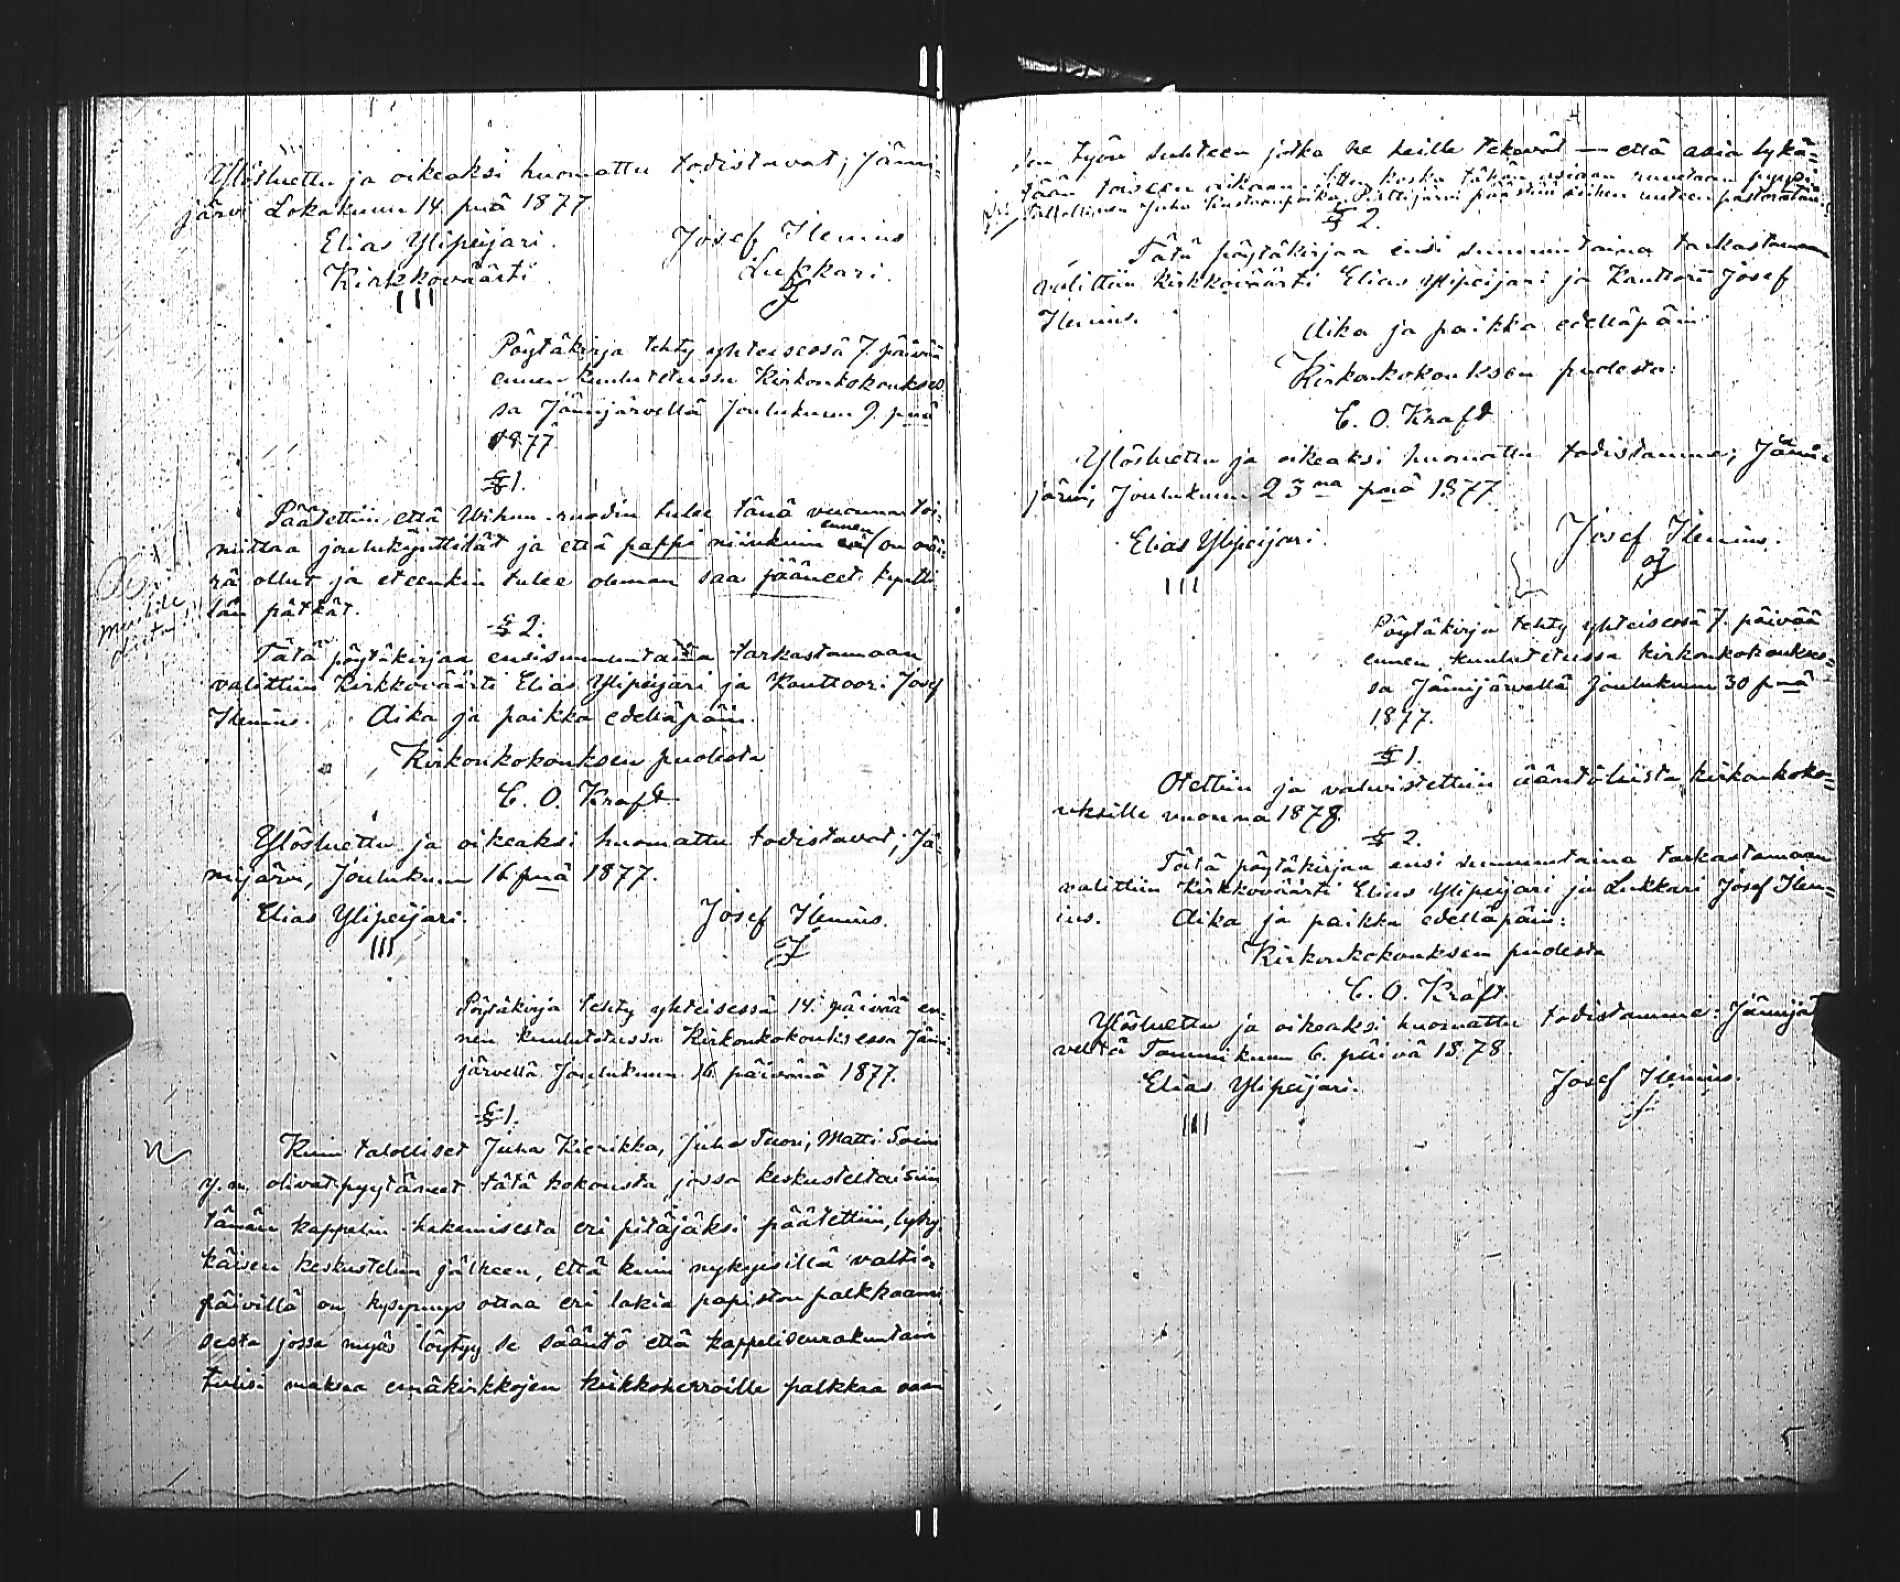 Ylösluettu ja oikeaksi huomattu todistavat; Jämi-
järvi Lokakuun 14 pnä 1877
Elias Ylipeijari. Josef Ilenius
Kirkkoväärti Lukkari.
Pöytäkirja tehty yhteisessä 7. päivää
ennen kuulutetussa Kirkonkokoukses-
sa Jämijärvellä Joulukuun 9. pnä
1877
§ 1.
Päätettiin, että Wihun ruodin tulee tänä vuonna toi-
mittaa joulukynttilät ja että pappi niinkuin ennen on
ollut ja eteenkin tulee oleman saa jääneet kyntti-
län pätkät.
§ 2.
Tätä pöytäkirjaa ensisunnuntaina tarkastamaan
valittiin Kirkkoväärti Elias Ylipeijari ja Kanttoori Josef
Ilenius. Aika ja paikka edelläpäin.
Kirkonkokouksen puolesta
C. O. Kraft
Ylösluettu ja oikeaksi huomattu todistavat; Jä-
mijärvi, Joulukuun 16 pnä 1877.
Elias Ylipeijari. Josef Ilenius.
Pöytäkirja tehty yhteisessä 14. päivää en-
nen kuulutetussa Kirkonkokouksessa Jämi-
järvellä Joulukuun 16 päivänä 1877.
§ 1.
Kuin talolliset Juha Kierikka, Juha Tuori, Matti Soini
y. m. olivat pyytäneet tätä kokousta jossa keskusteltaisiin
tämän kappelin hakemisesta eri pitäjäksi päätettiin, lyhy-
käisen keskustelun jälkeen, että kuin nykyisillä valtio-
päivillä on kysymys ottaa eri lakia papiston palkkaami-
sesta jossa myös löytyy se sääntö että kappeliseurakuntain
tulisi maksaa emäkirkkojen kirkkoherroille palkkaa vaan
sen työn suhteen jotka he heille tekevät — että asia lykä-
tään toiseen aikaan.
§ 2.
Tätä pöytäkirjaa ensi sunnuntaina tarkastamaan
valittiin Kirkkoväärti Elias Ylipeijari ja Kanttori Josef
Ilenius.
Aika ja paikka edelläpäin
Kirkonkokouksen puolesta:
C. O. Kraft
Ylösluettu ja oikeaksi huomattu todistamme; Jämi-
järvi, Joulukuun 23 na pnä 1877
Elias Ylipeijari. Josef Ilenius.
Pöytäkirja tehty yhteisessä 7. päivää
ennen kuulutetussa kirkonkokoukses-
sa Jämijärvellä Joulukuun 30 pnä
1877.
§ 1.
Otettiin ja vahvistettiin ääntöliista kirkonkoko-
uksille vuonna 1878.
§ 2.
Tätä pöytäkirjaa ensi sunnuntaina tarkastamaan
valittiin Kirkkoväärti Elias Ylipeijari ja Lukkari Josef Ilen-
ius. Aika ja paikka edelläpäin:
Kirkonkokouksen puolesta
C. O. Kraft.
Ylösluettu ja oikeaksi huomattu todistamme: Jämijär
vellä Tammikuun 6. päivä 1878.
Elias Ylipeijari. Josef Ilenius.